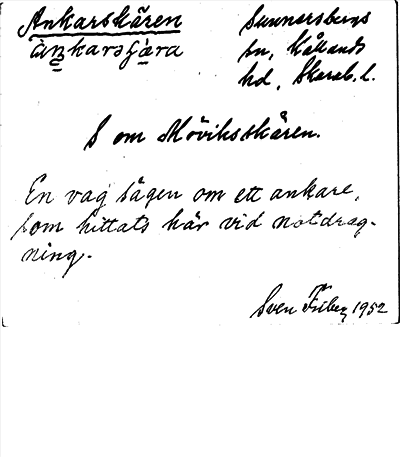 Ankarskären
ànkarsjàra
Sunnersbergs
sn, Kållands
hd, Skarab. l.
S om Möviksskären.
En vag sägen om ett ankare,
som hittats här vid notdrag-
ning.
Sven 1952